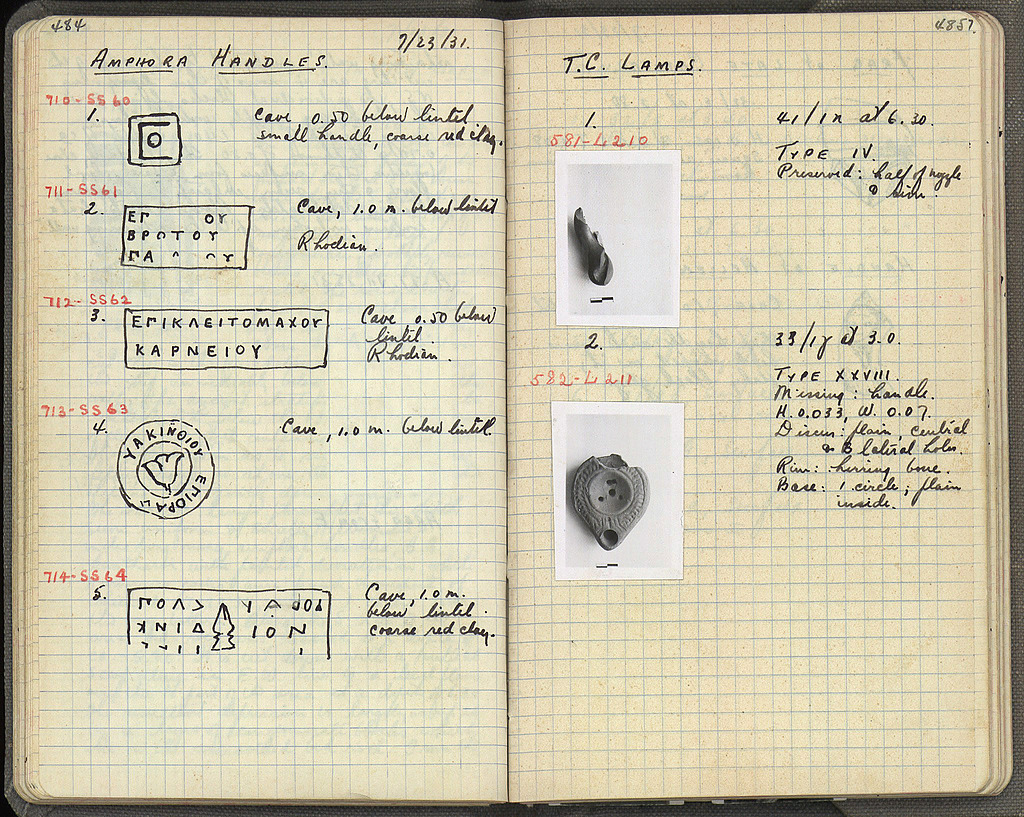 484
7/23/31.
AMPHORA HANDLES.
710-SS 60
1.
Cave 0.50 below lintel
small handle, coarse red clay.
711-SS61
2.
ΕΓ ΟΥ
ΒΡΟΤΟΥ
ΠΑ
Cave, 1.0 m. below lintel
Rhodian.
712-SS62
3.
ΕΠΙΚΛΕΙΤΟΜΑΧΟΥ
ΚΑΡΝΕΙΟΥ
Cave 0.50 below
lintil.
Rhodian.
713-SS63
4.
ΥΑΚΙΝΘΙΟΥ ΕΠΙΟΡΑ
Cave, 1.0 m. below lintel.
714-SS64
5.
ΚΝΙΔ ΙΟΝ
Cave, 1.0 m.
below lintel.
coarse red clay.
4857.
T.C. LAMPS.
1.
581-L210
41/1Π at 6.30.
TYPE IV.
Preserved: half of nozzle
582-L211
2.
33/ at 3.0.
TYPE XXVIII.
Missing: handle.
H. 0.033, W. 0.07.
Discus: plain, central
& 3 lateral holes.
Rim: herring bone.
Base: 1 circle; plain
inside.